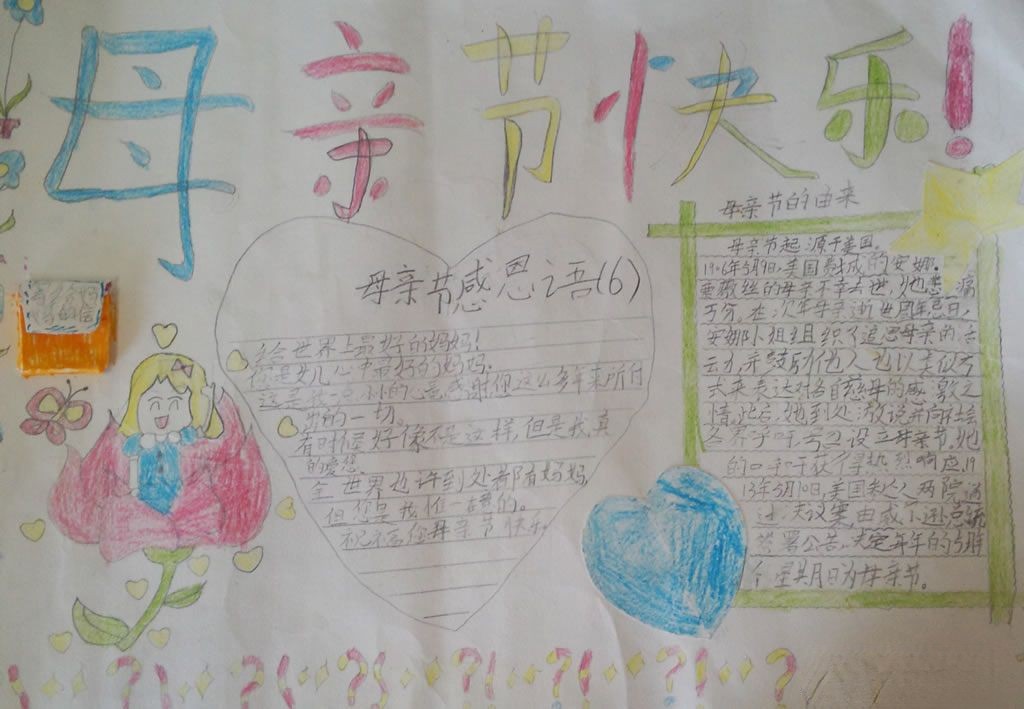 母亲节快乐!
母亲节感恩之语(6)
给世界上最好的妈妈!
你是女儿心中最好的妈妈.
这是我一点小小的心意感谢你这么多年来所付
出的一切。
有时候好像不是这样,但是我真
的爱您.
全世界也许到处都有妈妈,
但您是我惟一的。
祝 您母亲节快乐
母亲节的由来
母亲节起源于美国。
1906年5月9日,美国费城的安娜.
贾薇丝的母亲不幸去世,她悲痛
万分。在次年母亲逝世周年忌日,
安娜小姐组织了追思母亲的活
动,并鼓励他人也以类似方
式来表达对各自慈母的感激之
情,此后,她到处游说并向社会
各界呼吁,号召设立母亲节,她
的呼吁获得热烈响应,19
13年5月10日,美国 两院通
过 决议案,由威 逊总统
签署公告,决定每年的5月第
个星期日为母亲节。